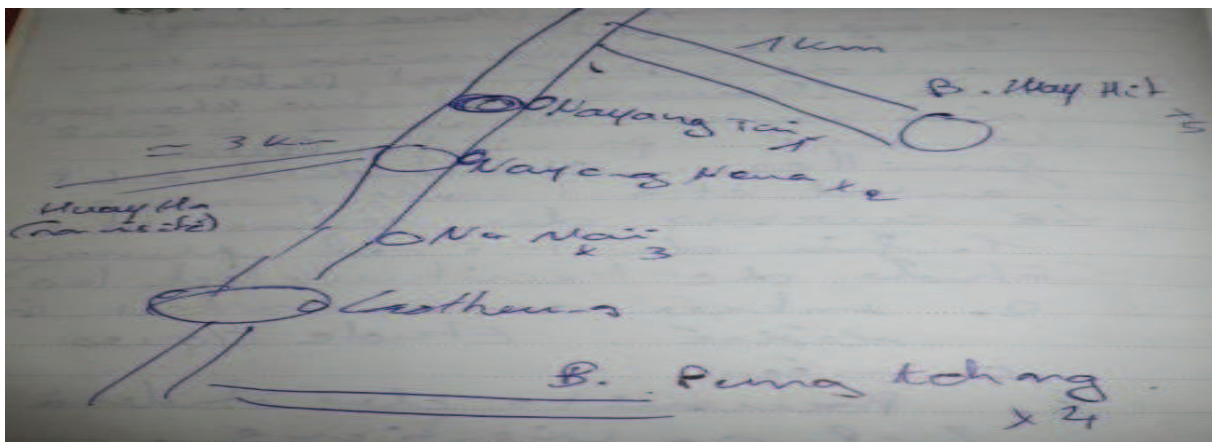 1 Km
B. Huay Hit
x5
Nayang Tai
1
= 3 Km
Nayang Neua x2
Huay Ha
(non visité)
Na Mai
x 3
B. Pung tchang
x 4